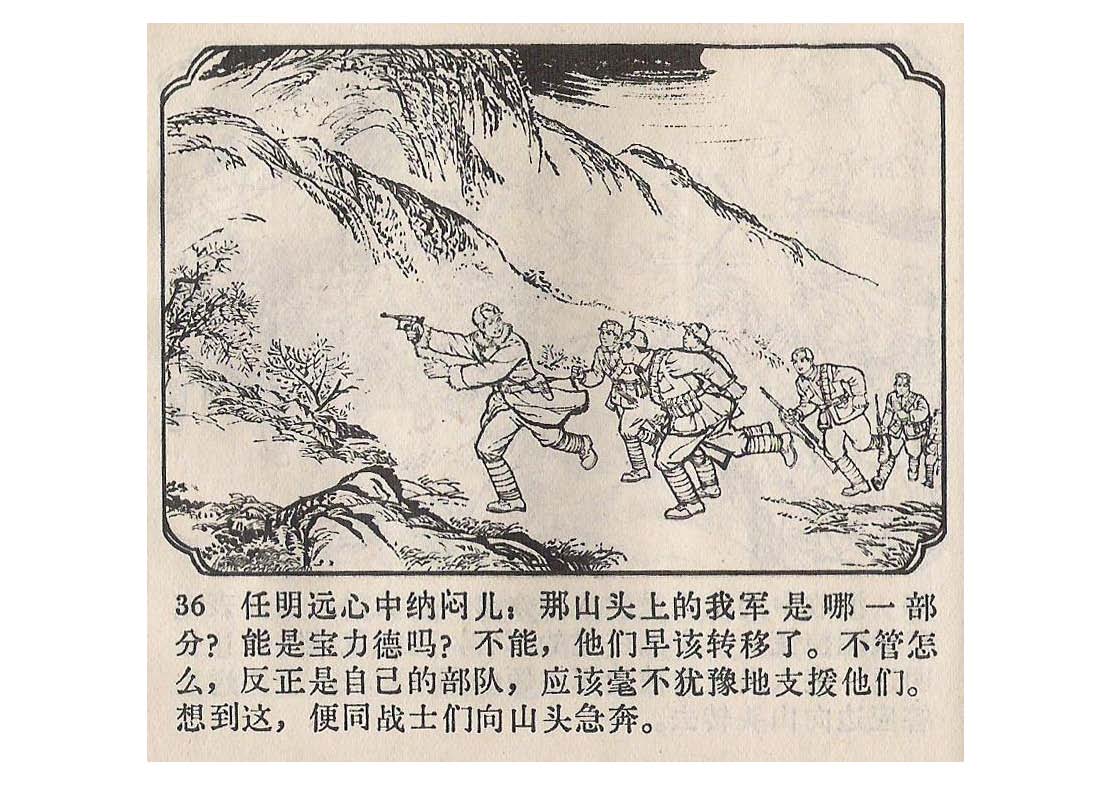 36 任明远心中纳闷儿：那山头上的我军是哪一部
分？能是宝力德吗？不能，他们早该转移了。不管怎
么，反正是自己的部队，应该毫不犹豫地支援他们。
想到这，便同战士们向山头急奔。